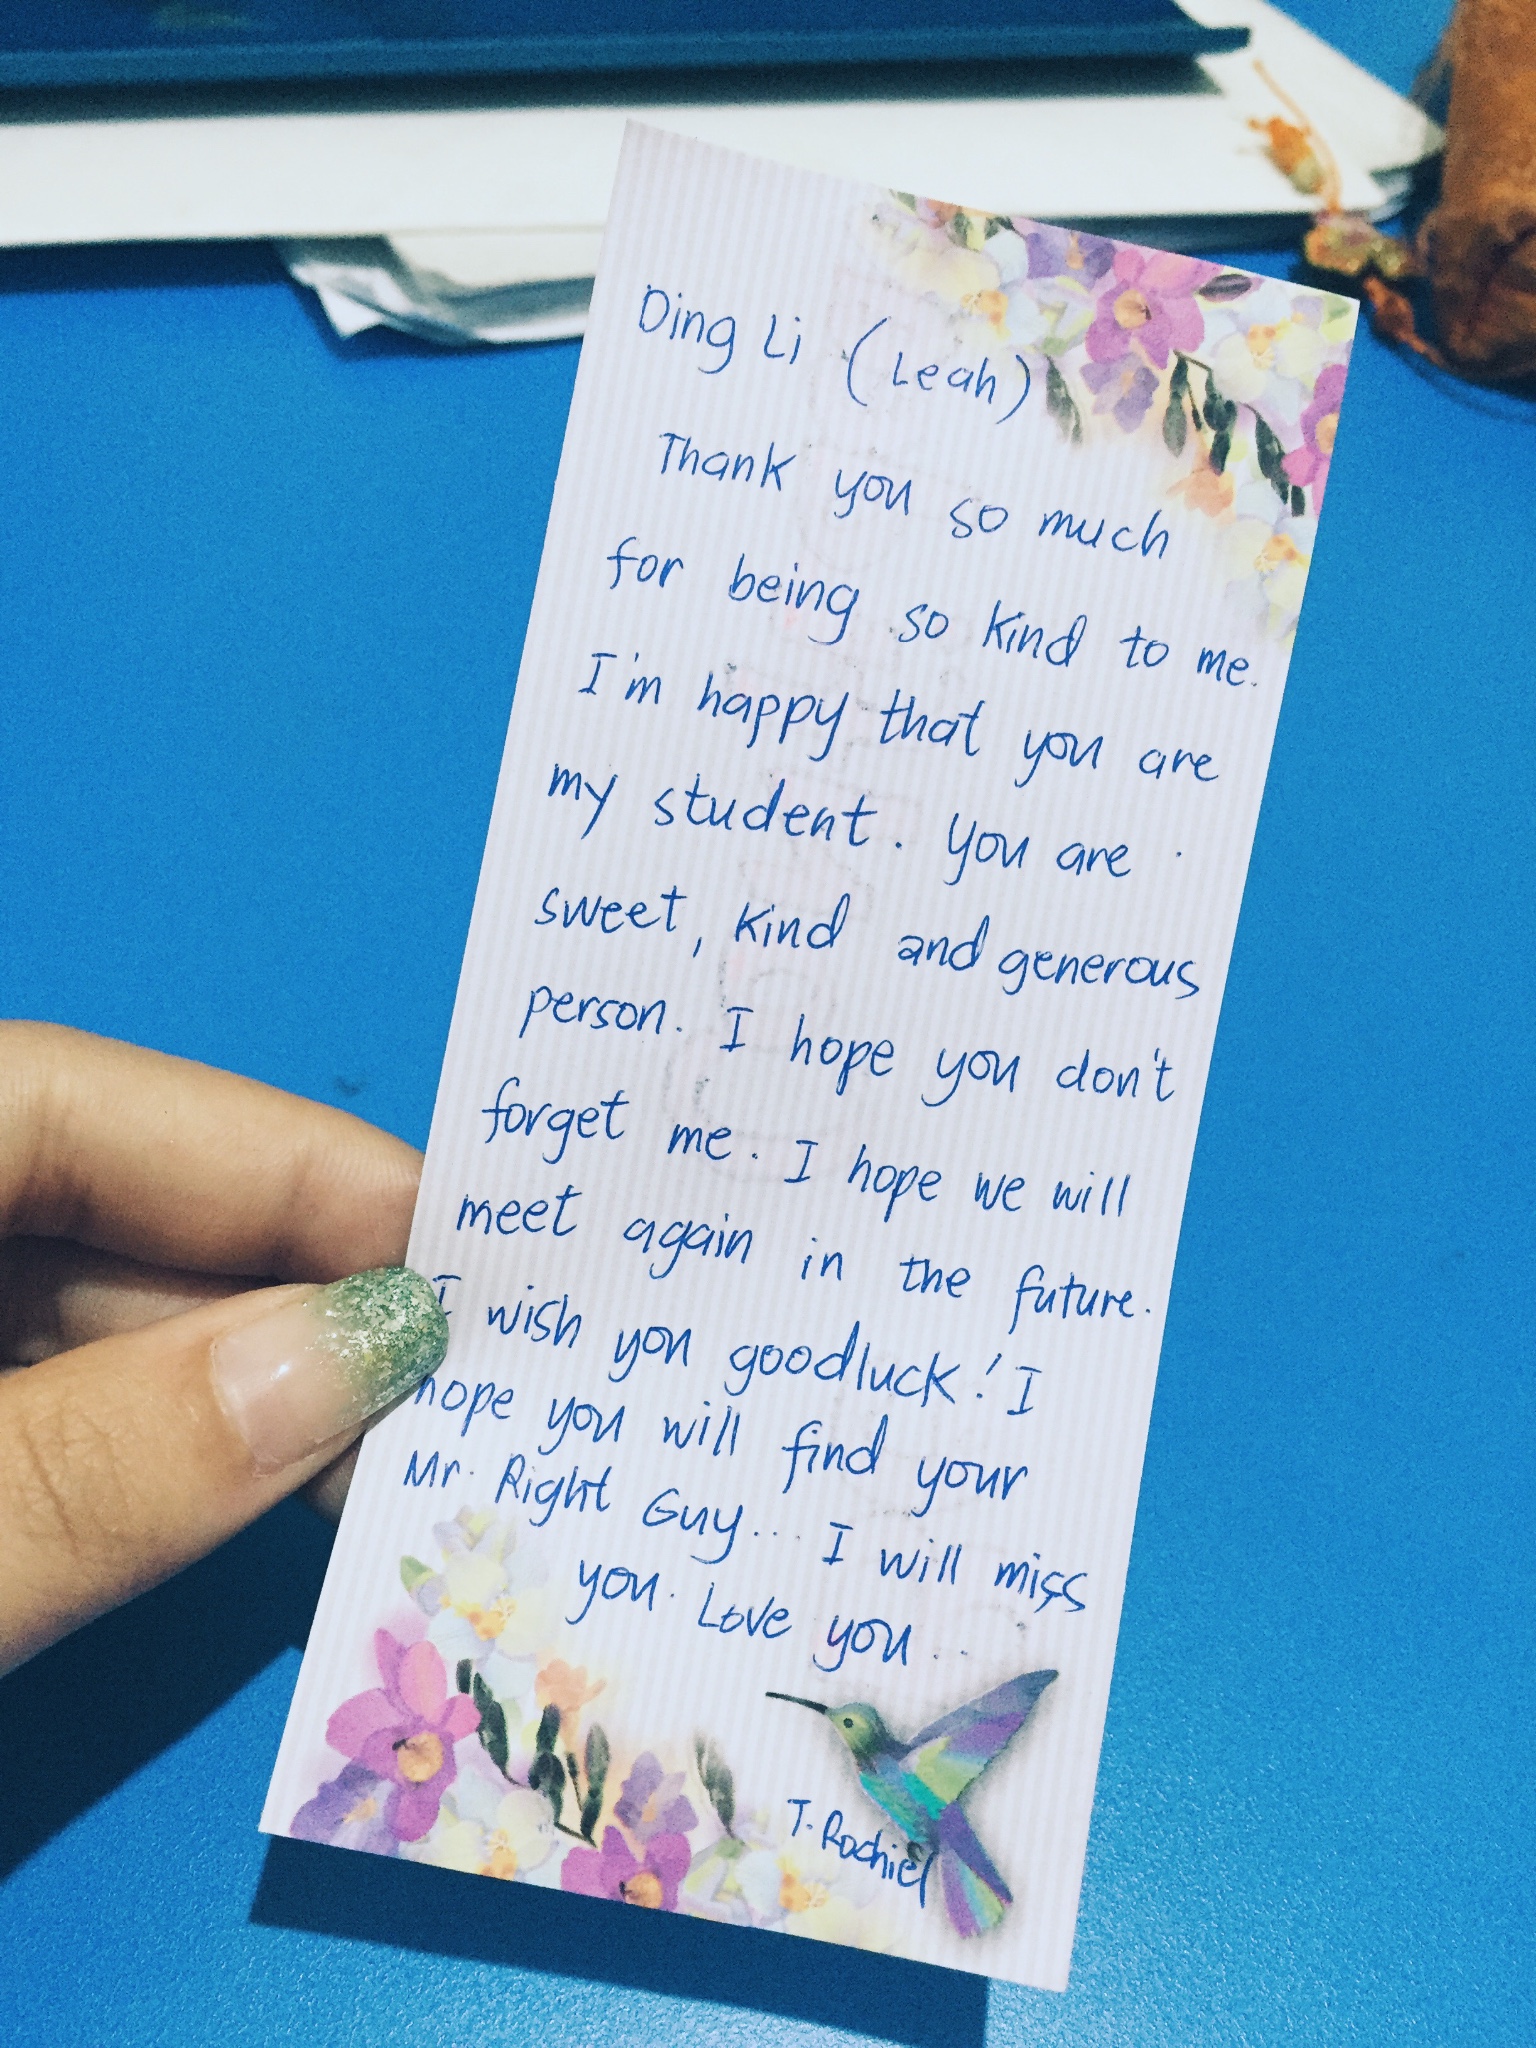 Ding Li (Leah)
Thank you so much
for being so kind to me.
I'm happy that you are
my student. You are
sweet, kind and generous
person. I hope you don't
forget me. I hope we will
meet again in the future.
I wish you goodluck! I
hope you will find your
Mr. Right Guy... I will miss
you. Love you..
T. Rochiel